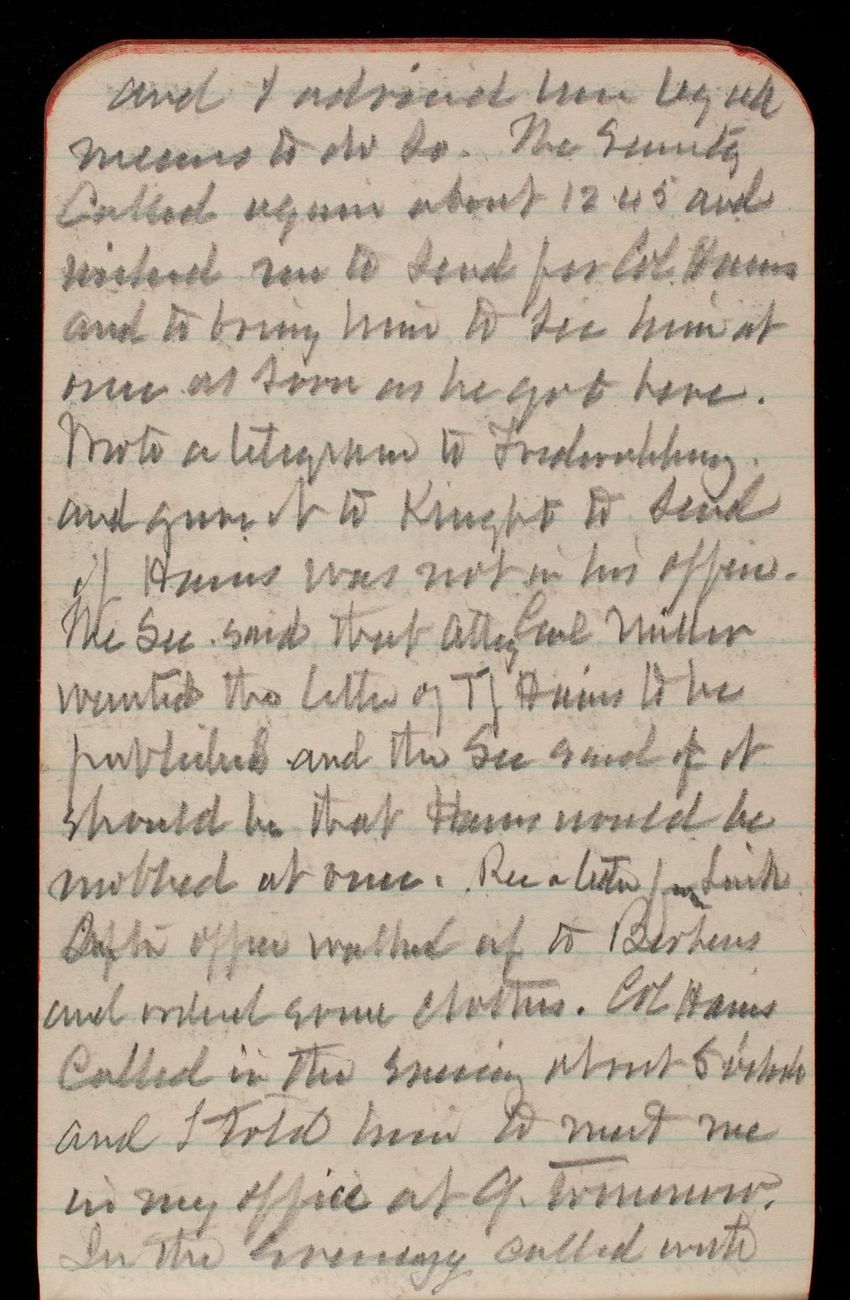 and I advised him by all
means to do so. The Secretary
Called again about 12 45 and
wished me to send for Col. Hains
and to bring him to see him at
once as soon as he got here.
Wrote a telegram to Fredericksburg
and gave it to Knight to send
if Hains was not in his office.
The Sec. said that Atty Genl Miller
wanted the letter of Hains to be
published and the Sec said if it
should be that Hains would be
mobbed at once. Rec a letter from
After office walked up to
and ordered some clothes. Col Hains
Called in the evening about 5 o'clock
and I told him to meet me
in my office at 9. tomorrow.
In the evening called with